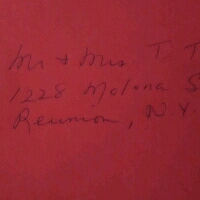 Mr + Mrs. T. T
1228 Molona S
Reunion, N.Y.